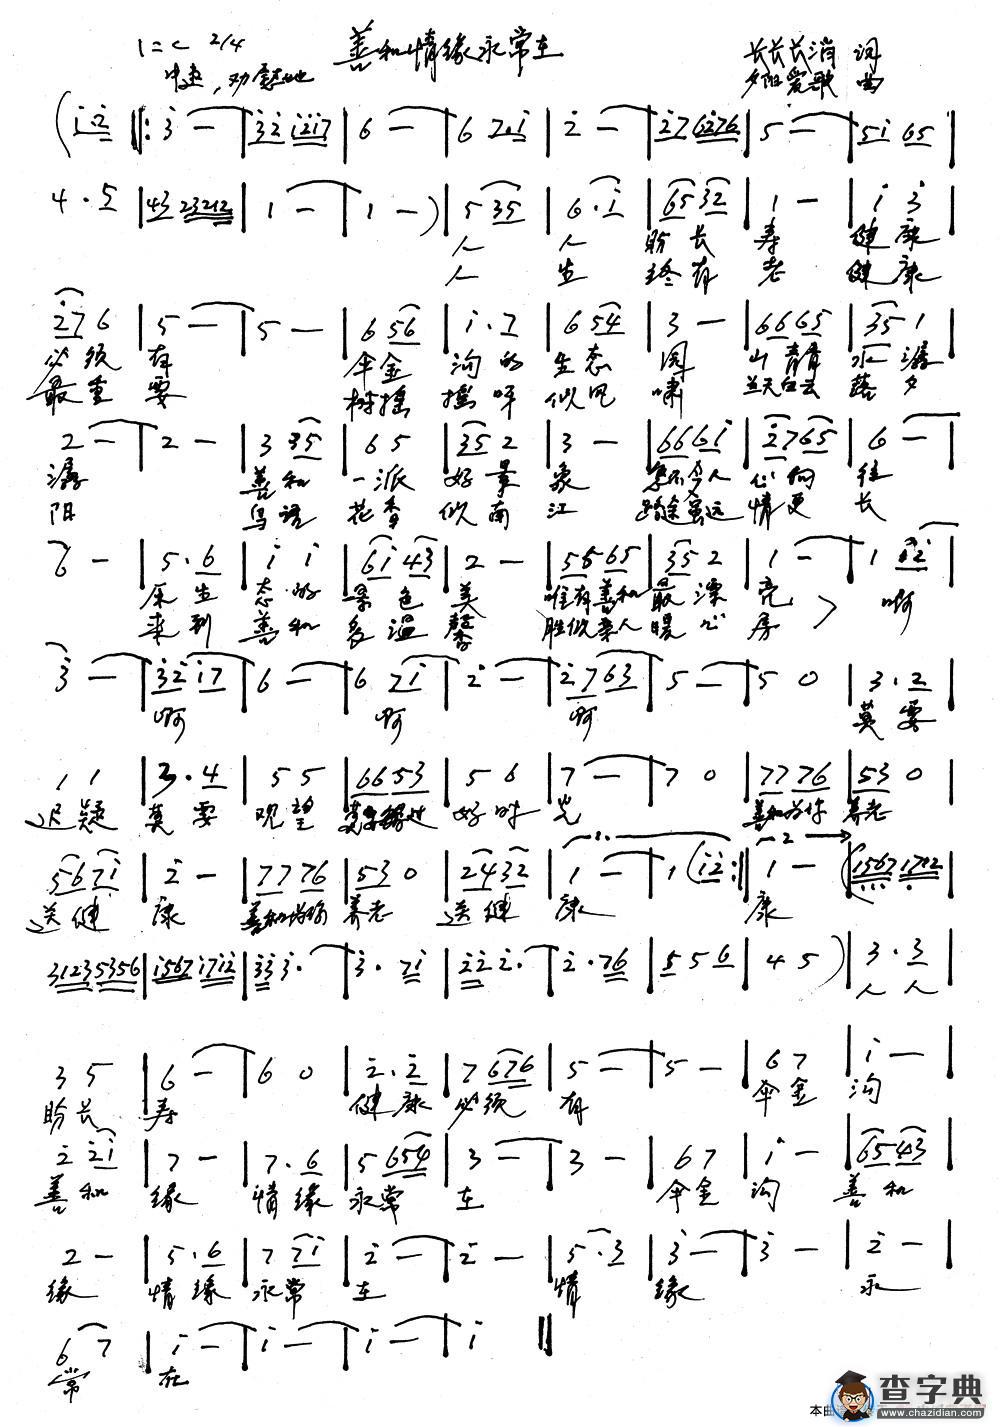 善和情缘永常在
1=C 2/4
中速，劝慰地
长长长消 词
夕阳爱歌 曲
(i 2 ‖: 3 — | 32 1217 | 6 — | 6 7.1 | 2 — | 27 6276 | 5 — | 51 65 |
4 . 5 | 43 23212 | 1 — | 1 —) | 5 35 | 6 . i | 65 32 | 1 — | i 3 |
人 人 盼 长 寿 健 康
人 生 终 有 老 健 康
27 6 | 5 — | 5 — | 6 56 | i . 7 | 6 54 | 3 — | 66 65 | 35 1 |
必 须 有 伞 金 沟 的 生 态 园 山 青 水 潺
最 重 要 树 摇 摇 呀 似 风 啸 兰天白云 落 夕
2 — | 2 — | 3 35 | 6 5 | 35 2 | 3 — | 66 6i | 2765 | 6 — |
潺 善 和 一 派 好 景 象 令人 心 向 往
阳 鸟 语 花 香 似 南 江 路途虽远 情 更 长
6 — | 5 . 6 | i i | 6i 43 | 2 — | 55 65 | 35 2 | 1 — | 1 12 |
原 生 态 的 景 色 美 唯有善和 最 漂 亮 啊
来 到 善 和 多 温 馨 胜似亲人 暖 心 房
3 — | 32 17 | 6 — | 6 7i | 2 — | 2 763 | 5 — | 5 0 | 3 . 2 |
啊 啊 啊 莫 要
1 1 | 3 . 4 | 5 5 | 66 53 | 5 6 | 7 — | 7 0 | 77 76 | 53 0 |
迟 疑 莫 要 观 望 错过 好 时 光 善和为你 养老
56 7i | 2 — | 77 76 | 53 0 | 24 32 | 1 — | 1 (i2 :‖ 1 — | (1567 1712 |
送 健 康 善和为你 养老 送 健 康 康
3123 5356 | i567 i7i2 | 33 3 . | 3 . 7i | 22 2 . | 2 . 76 | 5 5 6 | 4 5 ) | 3 . 3 |
人 人
3 5 | 6 — | 6 0 | 2 . 2 | 7 676 | 5 — | 5 — | 6 7 | i — |
盼 长 寿 健 康 必 须 有 伞 金 沟
2 2i | 7 — | 7 . 6 | 5 654 | 3 — | 3 — | 6 7 | i — | 65 43 |
善 和 缘 情 缘 永 常 在 伞 金 沟 善 和
2 — | 5 . 6 | 7 7i | 2 — | 2 — | 5 . 3 | 3 — | 3 — | 2 — |
缘 情 缘 永 常 在 情 缘 永
6 7 | i — | i — | i — | i ‖
常 在
本曲
查字典
www.chazidian.com